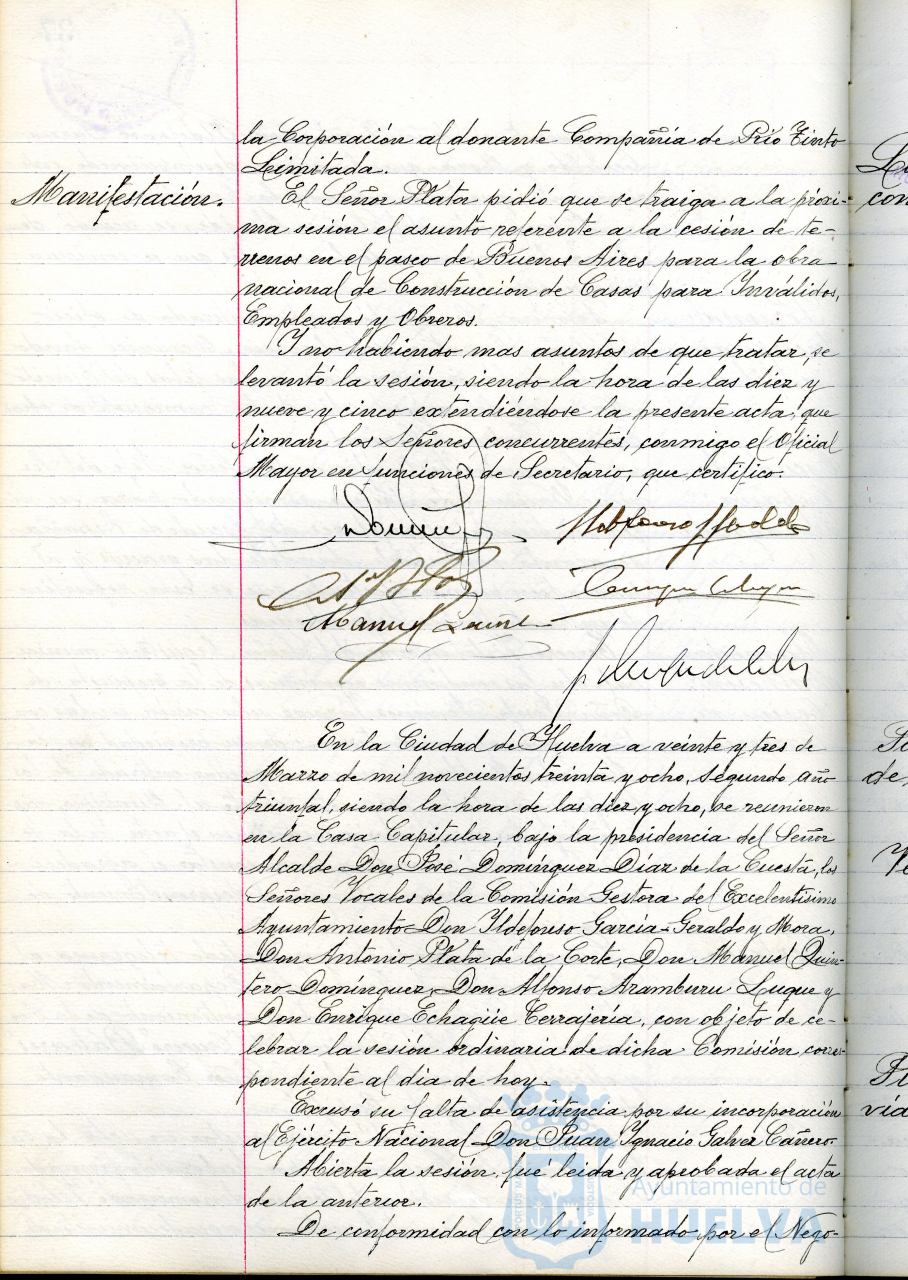 la Corporación al donante Compañía de Río Tinto
Limitada.
Manifestación.
El Señor Plata pidió que se traiga a la próxi-
ma sesión el asunto referente a la cesión de te-
rrenos en el paseo de Buenos Aires para la obra
nacional de Construcción de Casas para Inválidos,
Empleados y Obreros.
Y no habiendo mas asuntos de que tratar, se
levantó la sesión, siendo la hora de las diez y
nueve y cinco extendiéndose la presente acta, que
firman los Señores concurrentes, conmigo el Oficial
Mayor en funciones de Secretario, que certifico.
Manuel
En la Ciudad de Huelva a veinte y tres de
Marzo de mil novecientos treinta y ocho, Segundo año
triunfal, siendo la hora de las diez y ocho, se reunieron
en la Casa Capitular, bajo la presidencia del Señor
Alcalde Don José Domínguez Díaz de la Cuesta, los
Señores Vocales de la Comisión Gestora del Excelentísimo
Ayuntamiento Don Ildefonso García-Geraldo y Mora,
Don Antonio Plata de la Corte, Don Manuel Quin-
tero Domínguez, Don Alfonso Aramburu Luque y
Don Enrique Echagüe Cerrajería, con objeto de ce-
lebrar la sesión ordinaria de dicha Comisión corres-
pondiente al dia de hoy.
Excusó su falta de asistencia por su incorporación
al Ejército Nacional Don Juan Ignacio Galvez Cañero.
Abierta la sesión fué leida y aprobada el acta
de la anterior.
De conformidad con lo informado por el Nego-
Ayuntamiento de
HUELVA